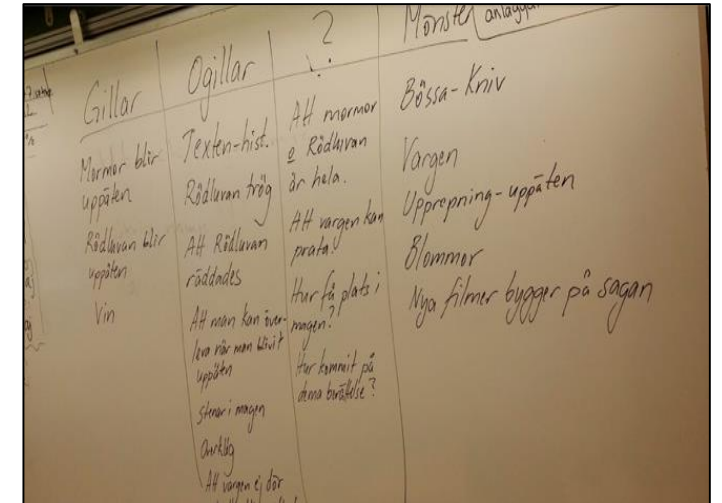 Gillar
Mormor blir
uppäten
Rödluvan blir
uppäten
Vin
Ogillar
Texten-hist.
Rödluvan trög
Att Rödluvan
räddades
Att man kan över-
leva när man blivit
uppäten
stenar i magen
Overklig
Att vargen ej dör
?
Att mormor
o Rödluvan
är hela.
Att vargen kan
prata!
Hur få plats i
magen?
Hur kommit på
denna berättelse?
Mönster
Bössa-Kniv
Vargen
Upprepning-uppäten
Blommor
Nya filmer bygger på sagan